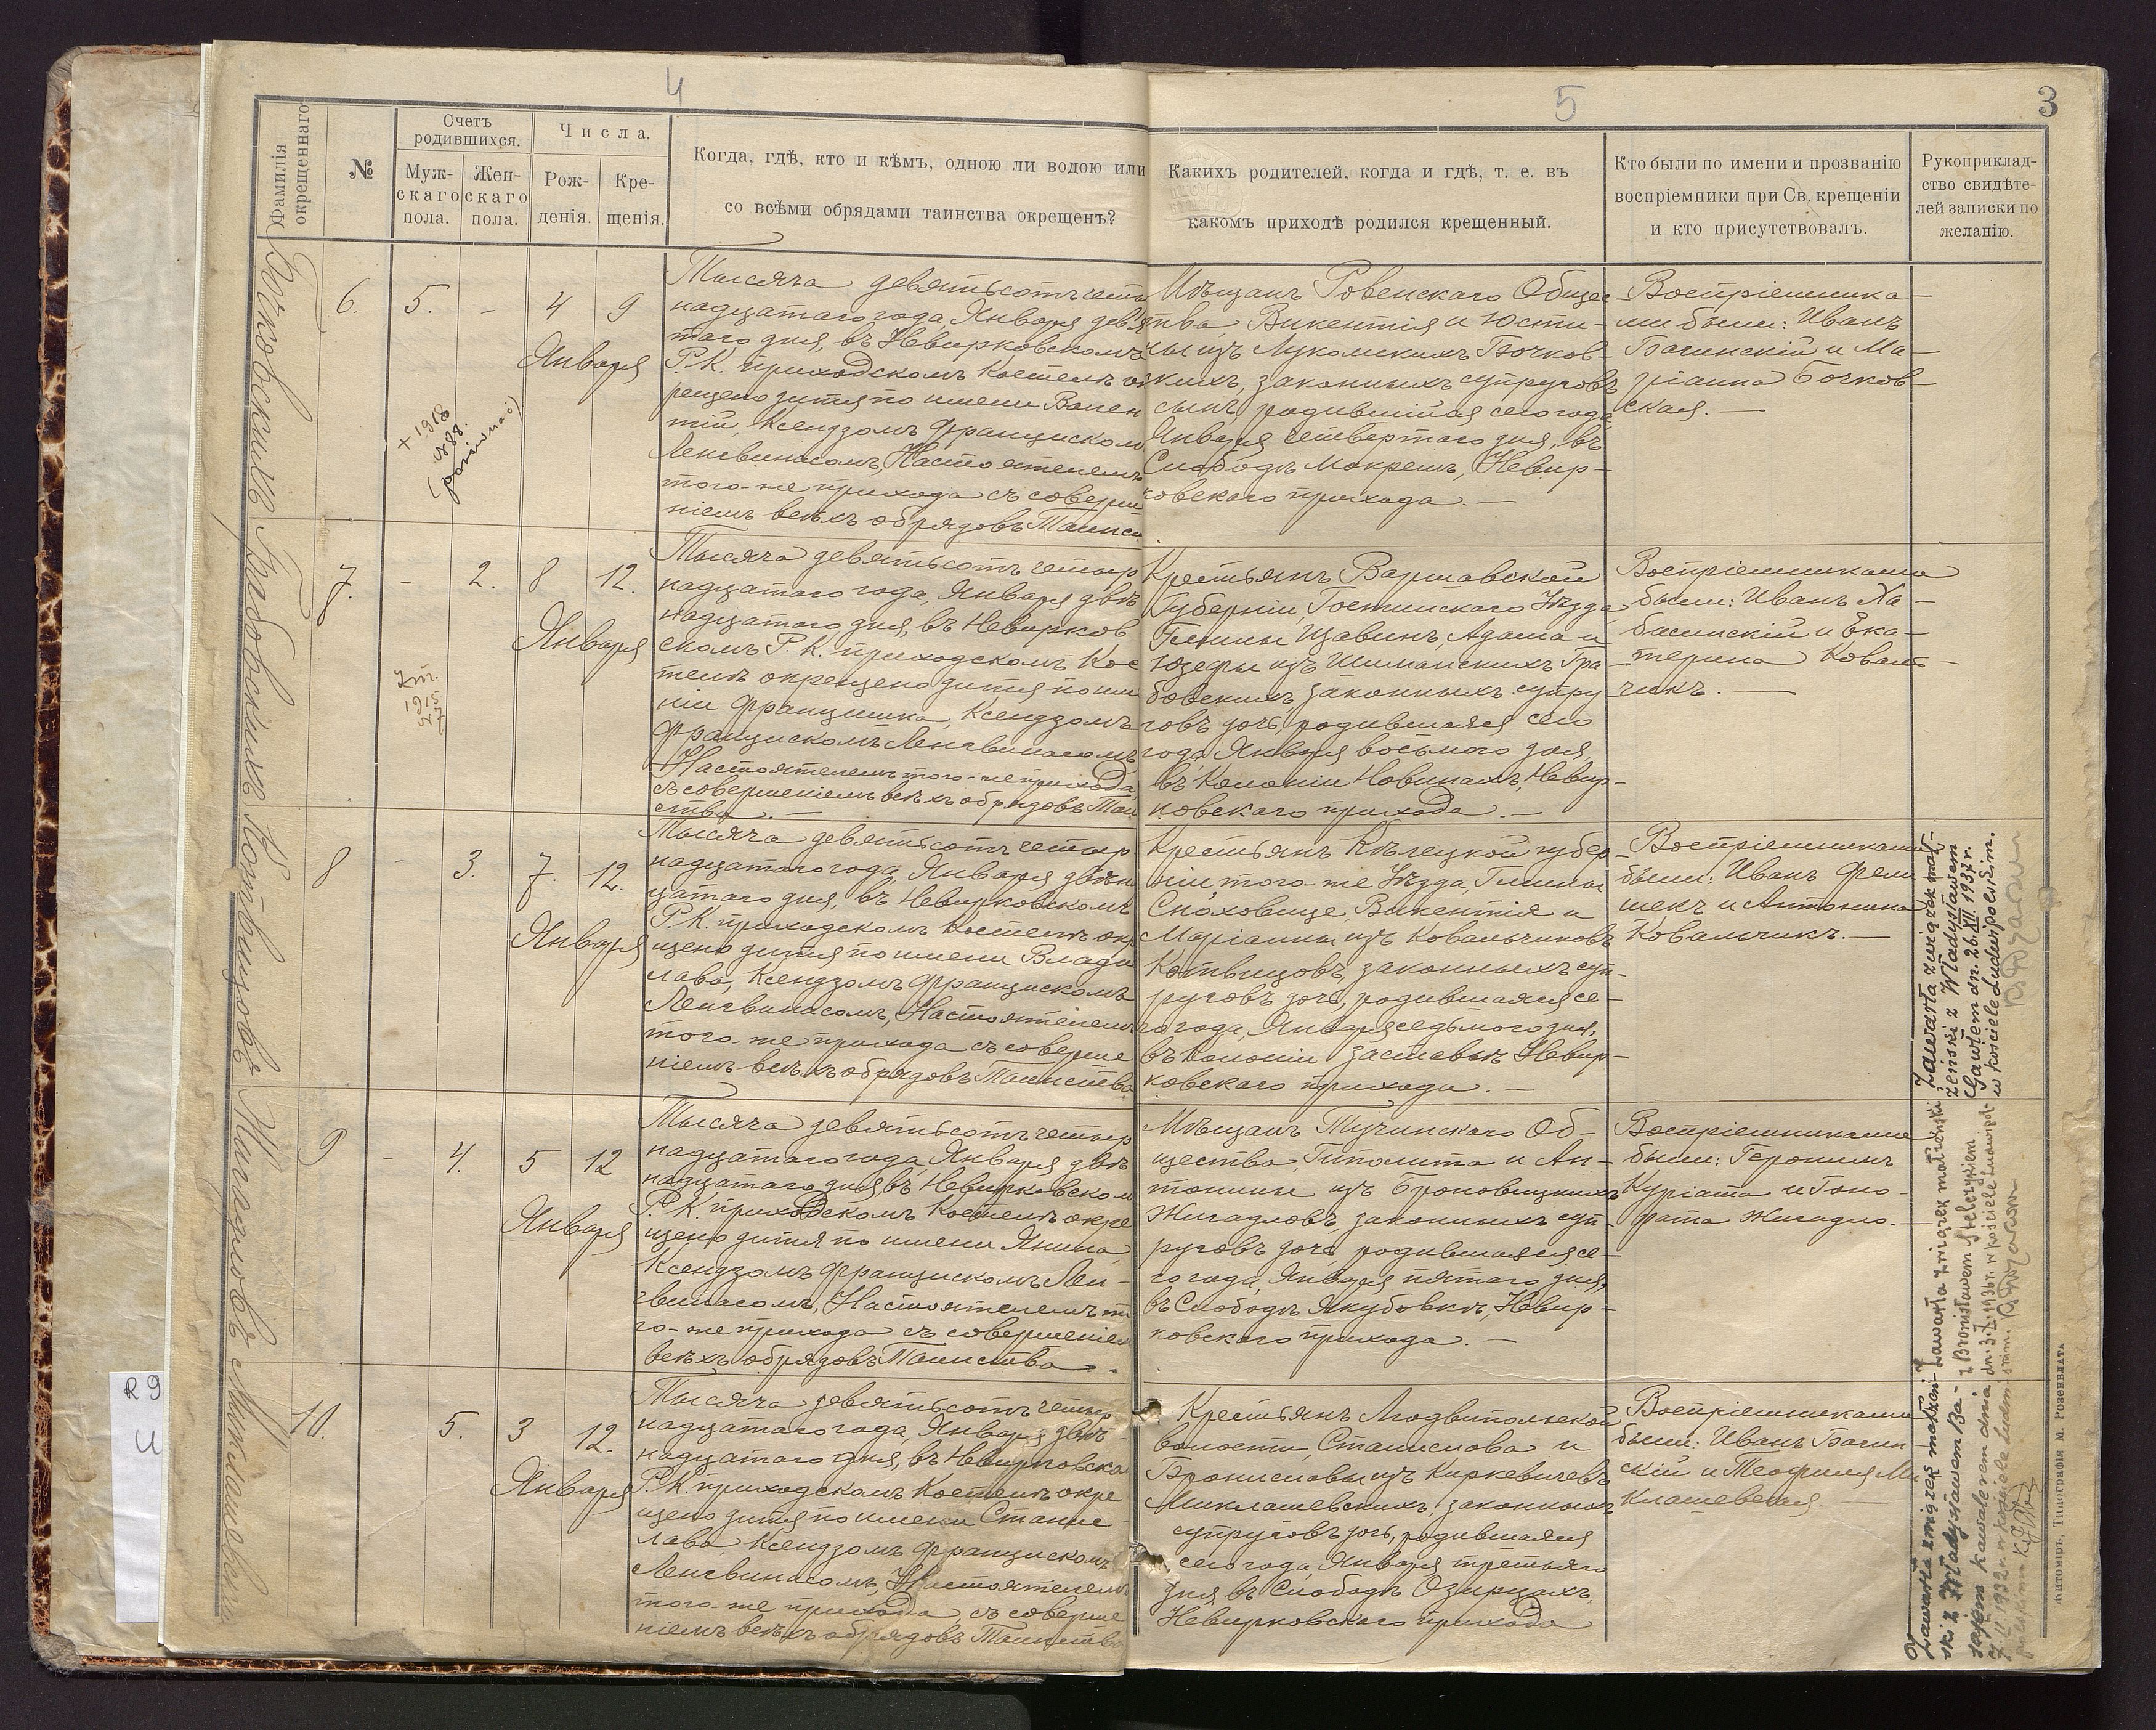 4
5
3
Фамилія
окрещеннаго
№
Счетъ
родившихся.
Муж-
скаго
пола.
Жен-
скаго
пола.
Числа.
Рож-
денія.
Кре-
щенія.
Когда, гдѣ, кто и кѣмъ, одною ли водою или
со всѣми обрядами таинства окрещенъ?
Какихъ родителей, когда и гдѣ, т. е. въ
какомъ приходѣ родился крещенный.
Кто были по имени и прозванію
воспріемники при Св. крещеніи
и кто присутствовалъ.
Рукоприклад-
ство свидѣте-
лей записки по
желанію.
6.
5.
-
4
9
Января
+ 1918
Тысяча девятьсотъ четы
надцатаго года, Января девя
таго дня, въ Невирковскомъ
Р. К. приходскомъ Костелѣ ок
рещено дитя по имени Викен
тій, Ксендзомъ Францискомъ
Ленгвинасомъ, Настоятелемъ
того-же прихода съ соверше
ніемъ всѣхъ обрядовъ Таинст
Мѣщанъ Ровенскаго Общес-
тва Викентія и Юсти-
ны изъ Лукомскихъ Бочков-
скихъ, законныхъ супруговъ
сынъ, родившійся сего года
Января четвертаго дня, въ
Слободѣ Мокрець, Невир-
ковскаго прихода. —
Воспріемника-
ми были: Иванъ
Багинскій и Ма-
ріанна Бочков-
ская. —
7.
-
2.
8
12.
Января
Zm.
1915
№ 7
Тысяча девятьсотъ четыр
надцатаго года, Января двѣ
надцатаго дня, въ Невирков
скомъ Р. К. приходскомъ Кос
телѣ окрещено дитя по име
ни Францишка, Ксендзомъ
Францискомъ Ленгвинасомъ
Настоятелемъ того-же прихода
съ совершеніемъ всѣхъ обрядовъ Таин
ства. —
Крестьянъ Варшавской
Губерніи, Гостинскаго Уѣзда
Гмины Щавинъ, Адама и
Юзефы изъ Шиманскихъ Гра-
бовскихъ, законныхъ супру
говъ дочь, родившаяся сего
года, Января восьмого дня,
въ Колоніи Новинахъ, Невир-
ковскаго прихода. —
Воспріемниками
были: Иванъ Ха-
басинскій и Ека-
терина Коваль-
чикъ. —
8
-
3.
7.
12.
Января
Тысяча девятьсотъ четыр
надцатаго года, Января двѣн
цатаго дня, въ Невирковскомъ
Р. К. приходскомъ Костелѣ окр
щено дитя по имени Влади
слава, Ксендзомъ Францискомъ
Ленгвинасомъ, Настоятелемъ
того-же прихода съ соверше
ніемъ всѣхъ обрядовъ Таинства
Крестьянъ Кѣлецкой губер-
ніи того-же Уѣзда, Гмины
Снохов­ице, Викентія и
Маріанны изъ Ковальчиковъ
Котвицовъ, законныхъ суп-
руговъ дочь, родившаяся се-
го года, Января седьмого дня,
въ Колоніи Заставье, Невир-
ковскаго прихода. —
Воспріемниками
были: Иванъ Фели
шекъ и Антонина
Ковальчикъ. —
Zawarła związek mał-
żeński z Władysławem
Gawłem dn. 26.XII.1937 r.
w kościele Ludwipolskim.
9
-
4.
5
12
Января
Тысяча девятьсотъ четыр
надцатаго года, Января двѣ
надцатаго дня, въ Невирковском
Р. К. приходскомъ Костелѣ окре
щено дитя по имени Янина,
Ксендзомъ Францискомъ Лен-
гвинасомъ, Настоятелемъ то
го-же прихода съ совершеніемъ
всѣхъ обрядовъ Таинства. -
Мѣщанъ Тучинскаго Об-
щества, Гиполита и Ан-
тонины изъ Броновицкихъ
Жигадловъ, законныхъ суп-
руговъ дочь, родившаяся се-
го года, Января пятаго дня,
въ Слободѣ Якубовкѣ, Невир-
ковскаго прихода. —
Воспріемниками
были: Геронимъ
Куріата и Гоно-
рата Жигадло. —
Zawarła związek małżeński
z Bronisławem
10.
5.
3
12.
Января
Тысяча девятьсотъ четыр
надцатаго года, Января двѣ-
надцатаго дня, въ Невирковско
Р. К. приходскомъ Костелѣ окре
щено дитя по имени Станис-
лава, Ксендзомъ Францискомъ
Ленгвинасомъ, Настоятелемъ
того-же прихода, съ соверше
ніемъ всѣхъ обрядовъ Таинства
Крестьянъ Людвипольской
волости, Станислава и
Брониславы изъ Киркевичевъ
Миклашевскихъ, законныхъ
супруговъ дочь, родившаяся
сего года, Января третьяго
дня, въ Слободѣ Озирцахъ,
Невирковскаго прихода
Воспріемниками
были: Иванъ Багин
скій и Теофиля Ми
клашевская. —
Zawarła związek małżeń-
ski z Władysławem Ba-
Бочковскихъ
Грабовскихъ
Котвицовъ
Жигадловъ
Миклашевскихъ
Житоміръ, Типографія М. Розенблата
R9